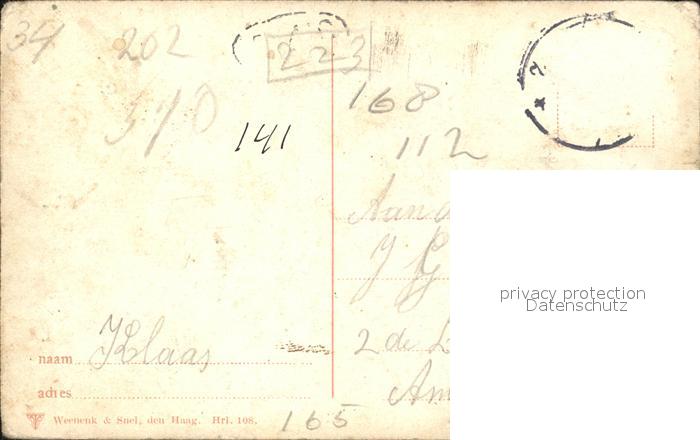 34
202
223
2
370
141
168
112
Aan
J G
2 de L
Am
naam Klaas
adres
Weenenk & Snel, den Haag. Hrl. 108.
165
privacy protection
Datenschutz